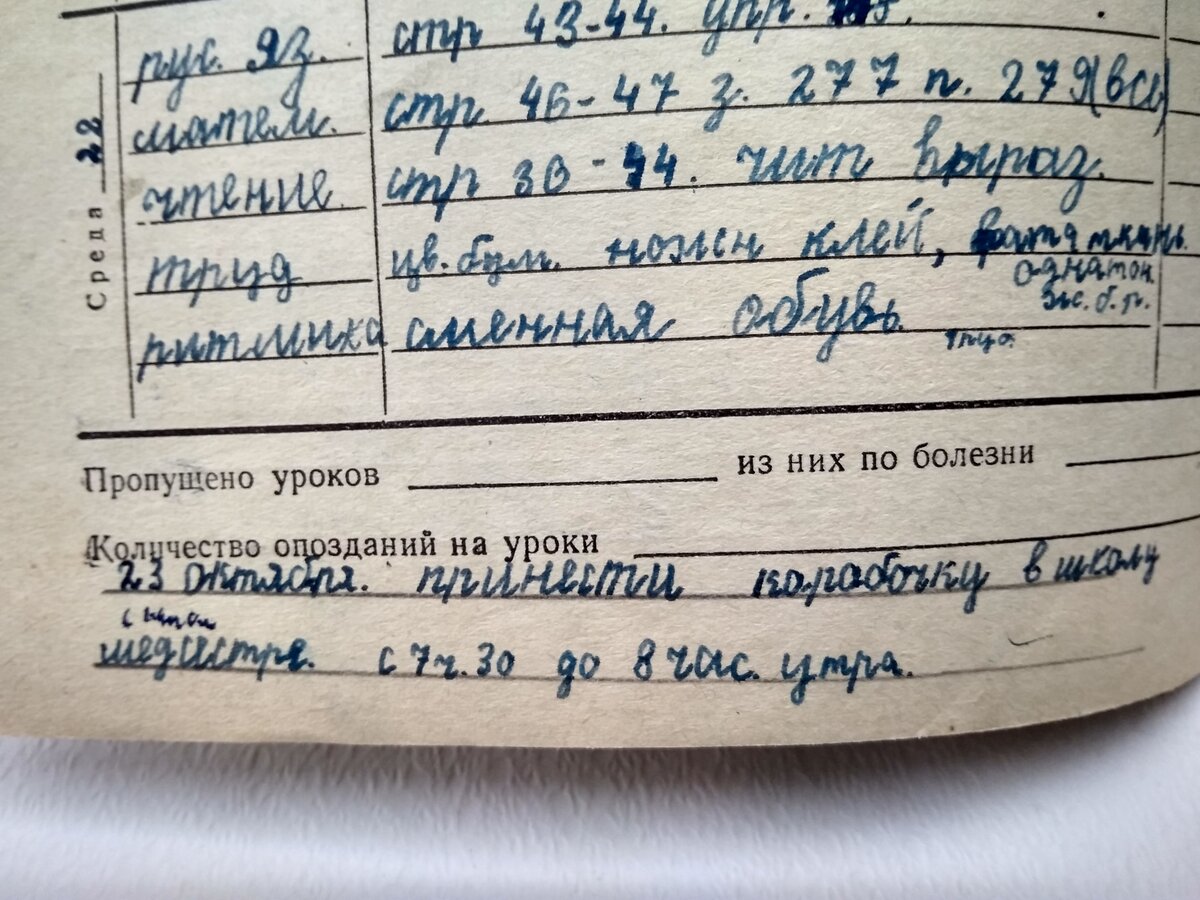 Среда 22
рус. яз. стр 43-44. упр.
матем. стр 46-47 з. 277 п. 279 (все)
чтение. стр 30-44. чит выраз.
труд цв. бум. ножн клей, вата ткань
однатон.
ритмика сменная обувь.
Пропущено уроков из них по болезни
Количество опозданий на уроки
23 октября. принести карабочку в школу
медсестре. с 7ч. 30 до 8 час. утра.